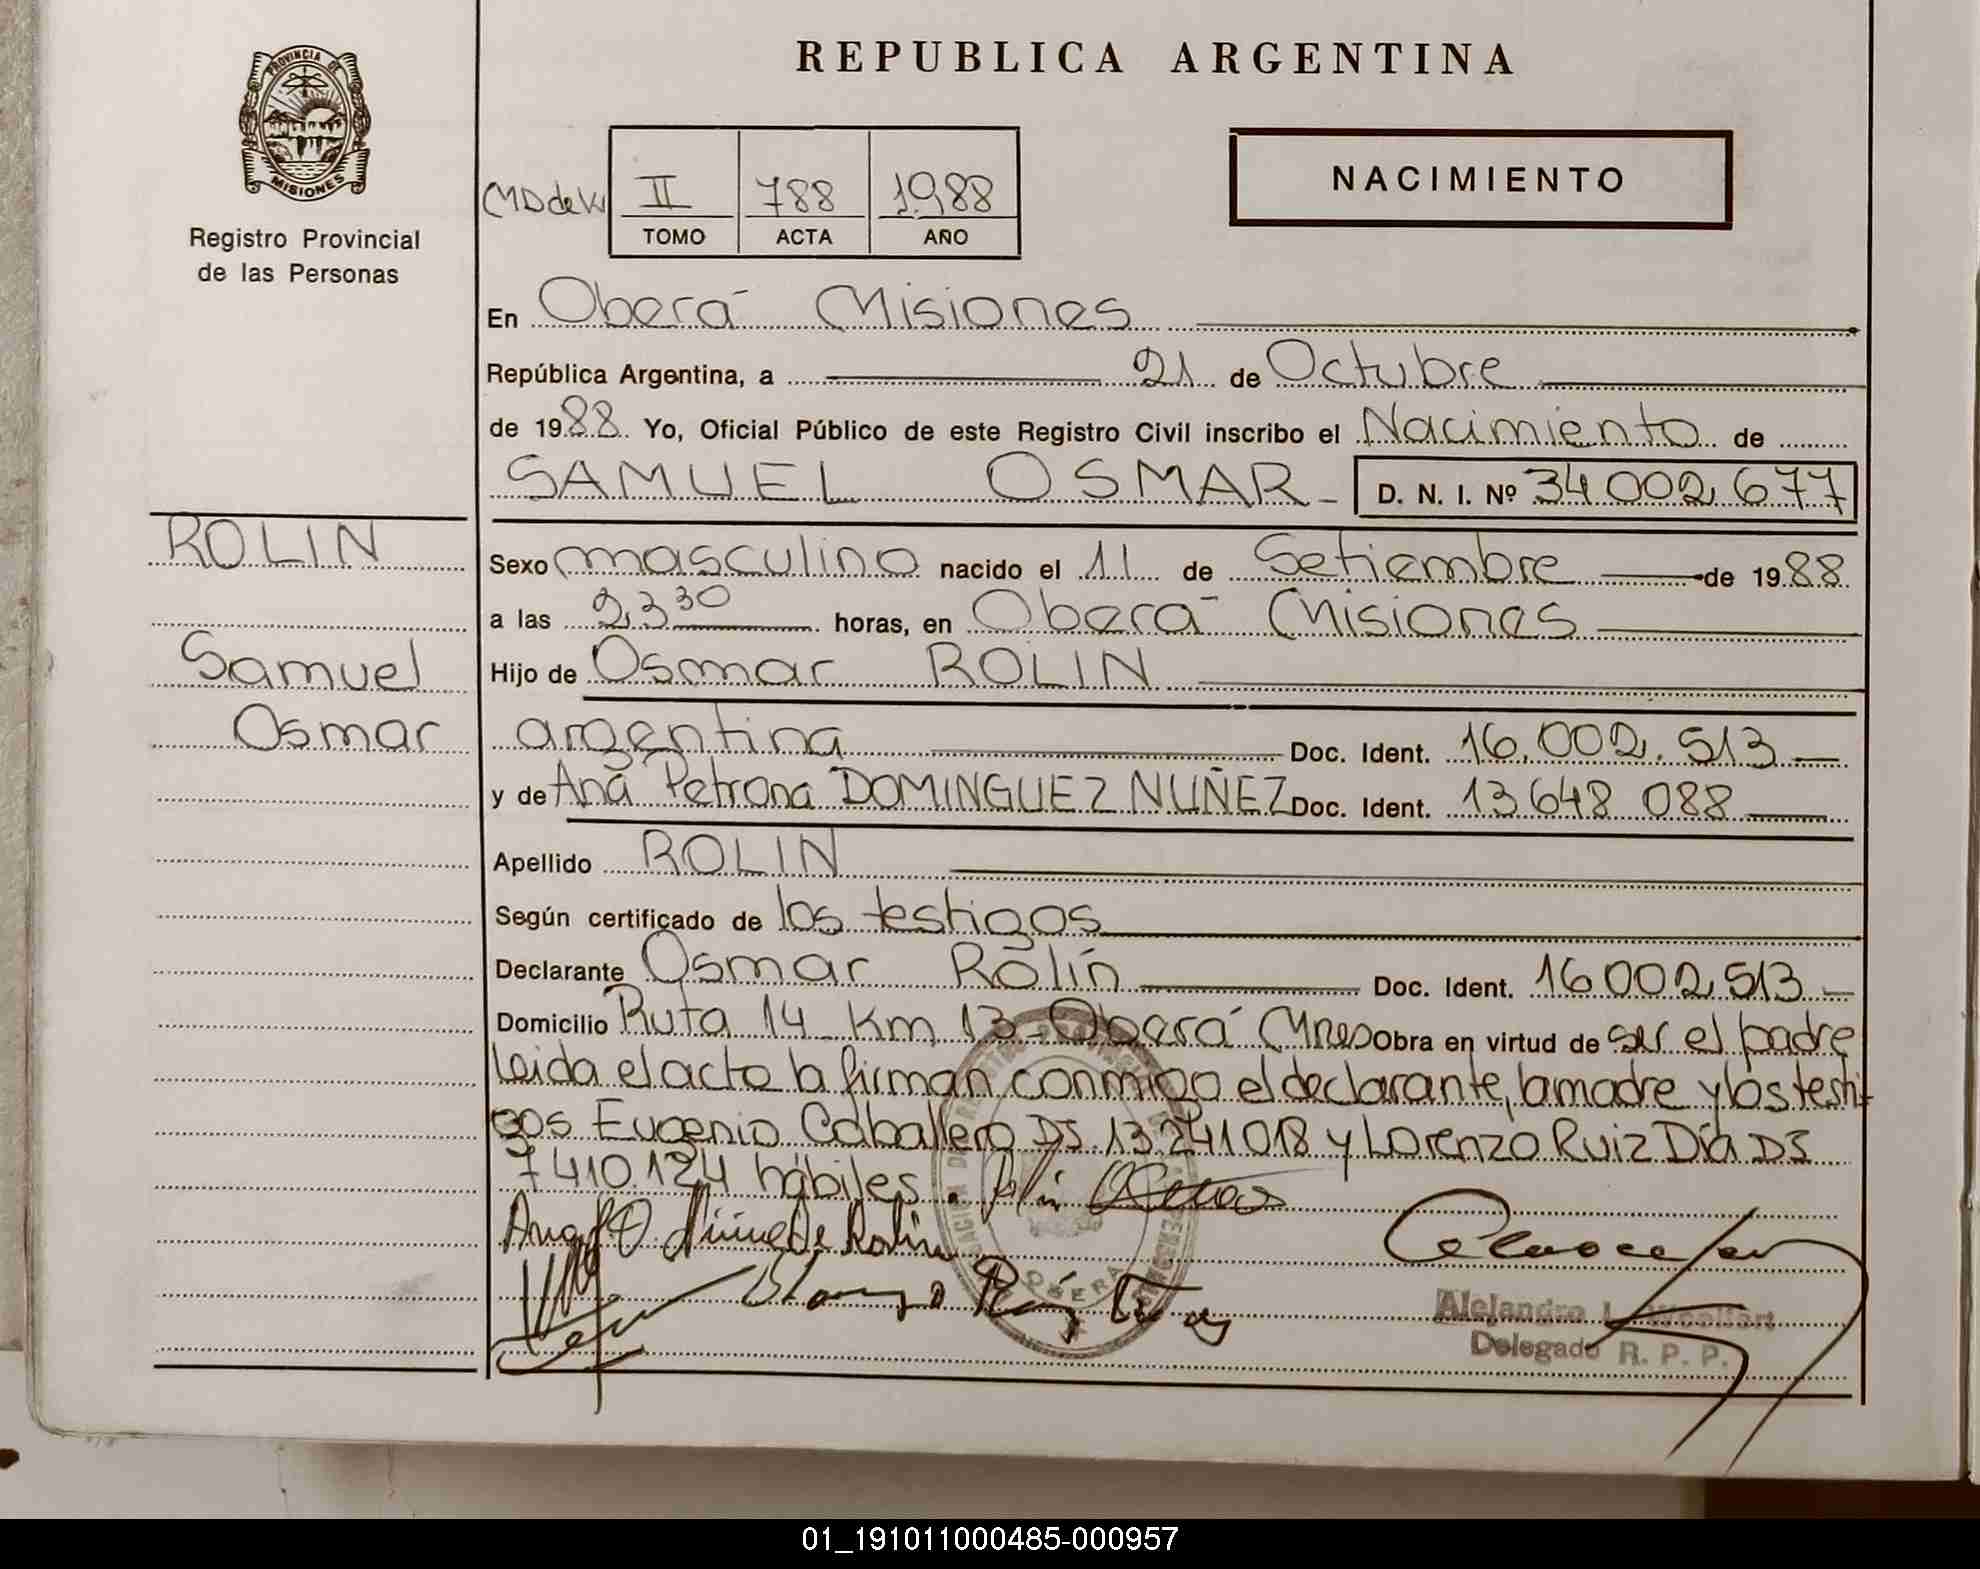 REPUBLICA ARGENTINA
PROVINCIA DE
MISIONES
Registro Provincial
de las Personas
II 788 1988
TOMO ACTA AÑO
NACIMIENTO
En Oberá Misiones
República Argentina, a 21 de Octubre
de 1988. Yo, Oficial Público de este Registro Civil inscribo el Nacimiento de
SAMUEL OSMAR D. N. I. Nº 34 002 677
ROLIN
Samuel
Osmar
Sexo masculino nacido el 11 de Setiembre de 1988
a las 23 30 horas, en Oberá Misiones
Hijo de Osmar ROLIN
argentina Doc. Ident. 16.002.513
y de Ana Petrona DOMINGUEZ NUÑEZ Doc. Ident. 13 648 088
Apellido ROLIN
Según certificado de los testigos
Declarante Osmar Rolín Doc. Ident. 16 002 513
Domicilio Ruta 14 Km 13 Oberá Mnes Obra en virtud de ser el padre
Leida el acto la firman conmigo el declarante, la madre y los testi-
gos Eugenio Caballero DS 13.241018 y Lorenzo Ruiz Día DS
7410.124 hábiles.
OBERA
Alejandro
Delegado R. P. P.
01_191011000485-000957